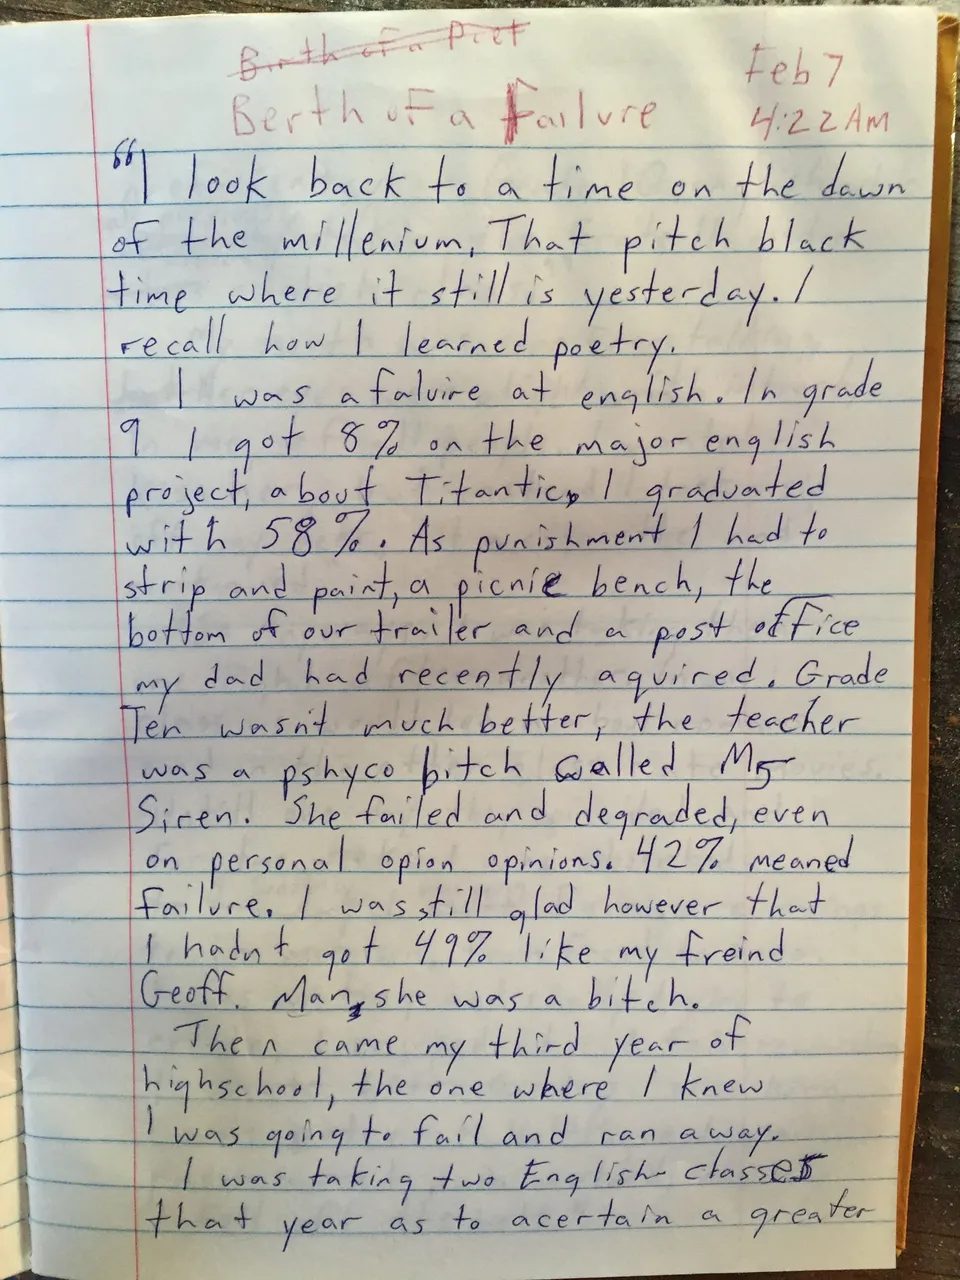 Birth of a Poet
Berth of a Failure
Feb 7
4:22 AM
"I look back to a time on the dawn
of the millenium, That pitch black
time where it still is yesterday. I
recall how I learned poetry.
I was a faluire at english. In grade
9 I got 8% on the major english
project, about Titantic, I graduated
with 58%. As punishment I had to
strip and paint, a picnic bench, the
bottom of our trailer and a post office
my dad had recently aquired. Grade
Ten wasn't much better, the teacher
was a pshyco bitch called Ms
Siren. She failed and degraded, even
on personal opion opinions. 42% meaned
failure. I was still glad however that
I hadn't got 49% like my freind
Geoff. Man, she was a bitch.
Then came my third year of
highschool, the one where I knew
I was going to fail and ran away.
I was taking two English classes
that year as to acertain a greater